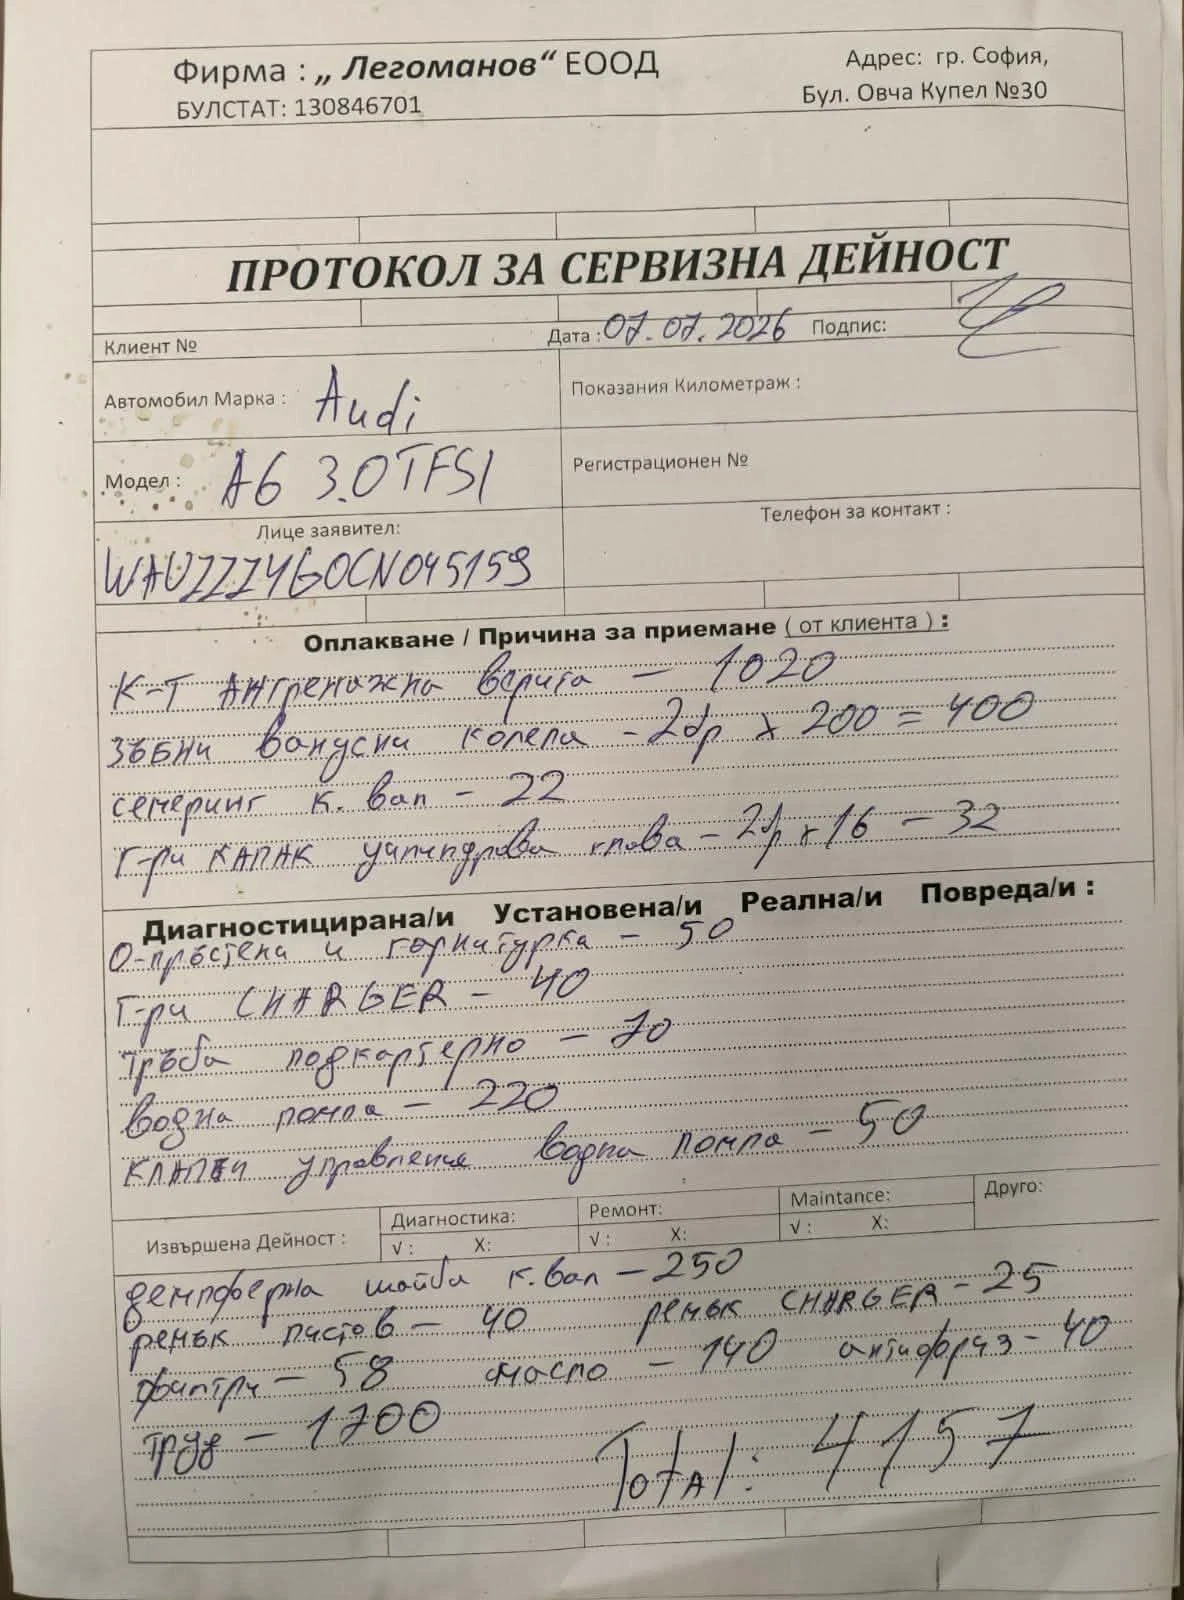 Фирма : „ Легоманов“ ЕООД
Адрес: гр. София,
БУЛСТАТ: 130846701
Бул. Овча Купел №30
ПРОТОКОЛ ЗА СЕРВИЗНА ДЕЙНОСТ
Клиент №
Дата : 07.07.2026 Подпис:
Автомобил Марка : Audi
Показания Километраж :
Модел : A6 3.0TFSI
Регистрационен №
Лице заявител:
Телефон за контакт :
WAUZZZ4G0CN045159
Оплакване / Причина за приемане ( от клиента ) :
К-Т Ангренажна верига – 1020
Зъбни ванусни колела – 2бр x 200 = 400
семеринг к. вал – 22
Г-ри КАПАК цилиндрова глава – 2бр x 16 – 32
Диагностицирана/и Установена/и Реална/и Повреда/и :
О-пръстена и гарнитурка – 50
Г-ри CHARGER – 40
тръба подкартерно – 70
водна помпа – 220
КЛАПАН управление водна помпа – 50
Извършена Дейност :
Диагностика:
√ : X:
Ремонт:
√ : X:
Maintance:
√ : X:
Друго:
демпферна шайба к. вал – 250
ремък пистов – 40 ремък CHARGER – 25
филтри – 58 масло – 140 антифриз – 40
труд – 1700
Total: 4157